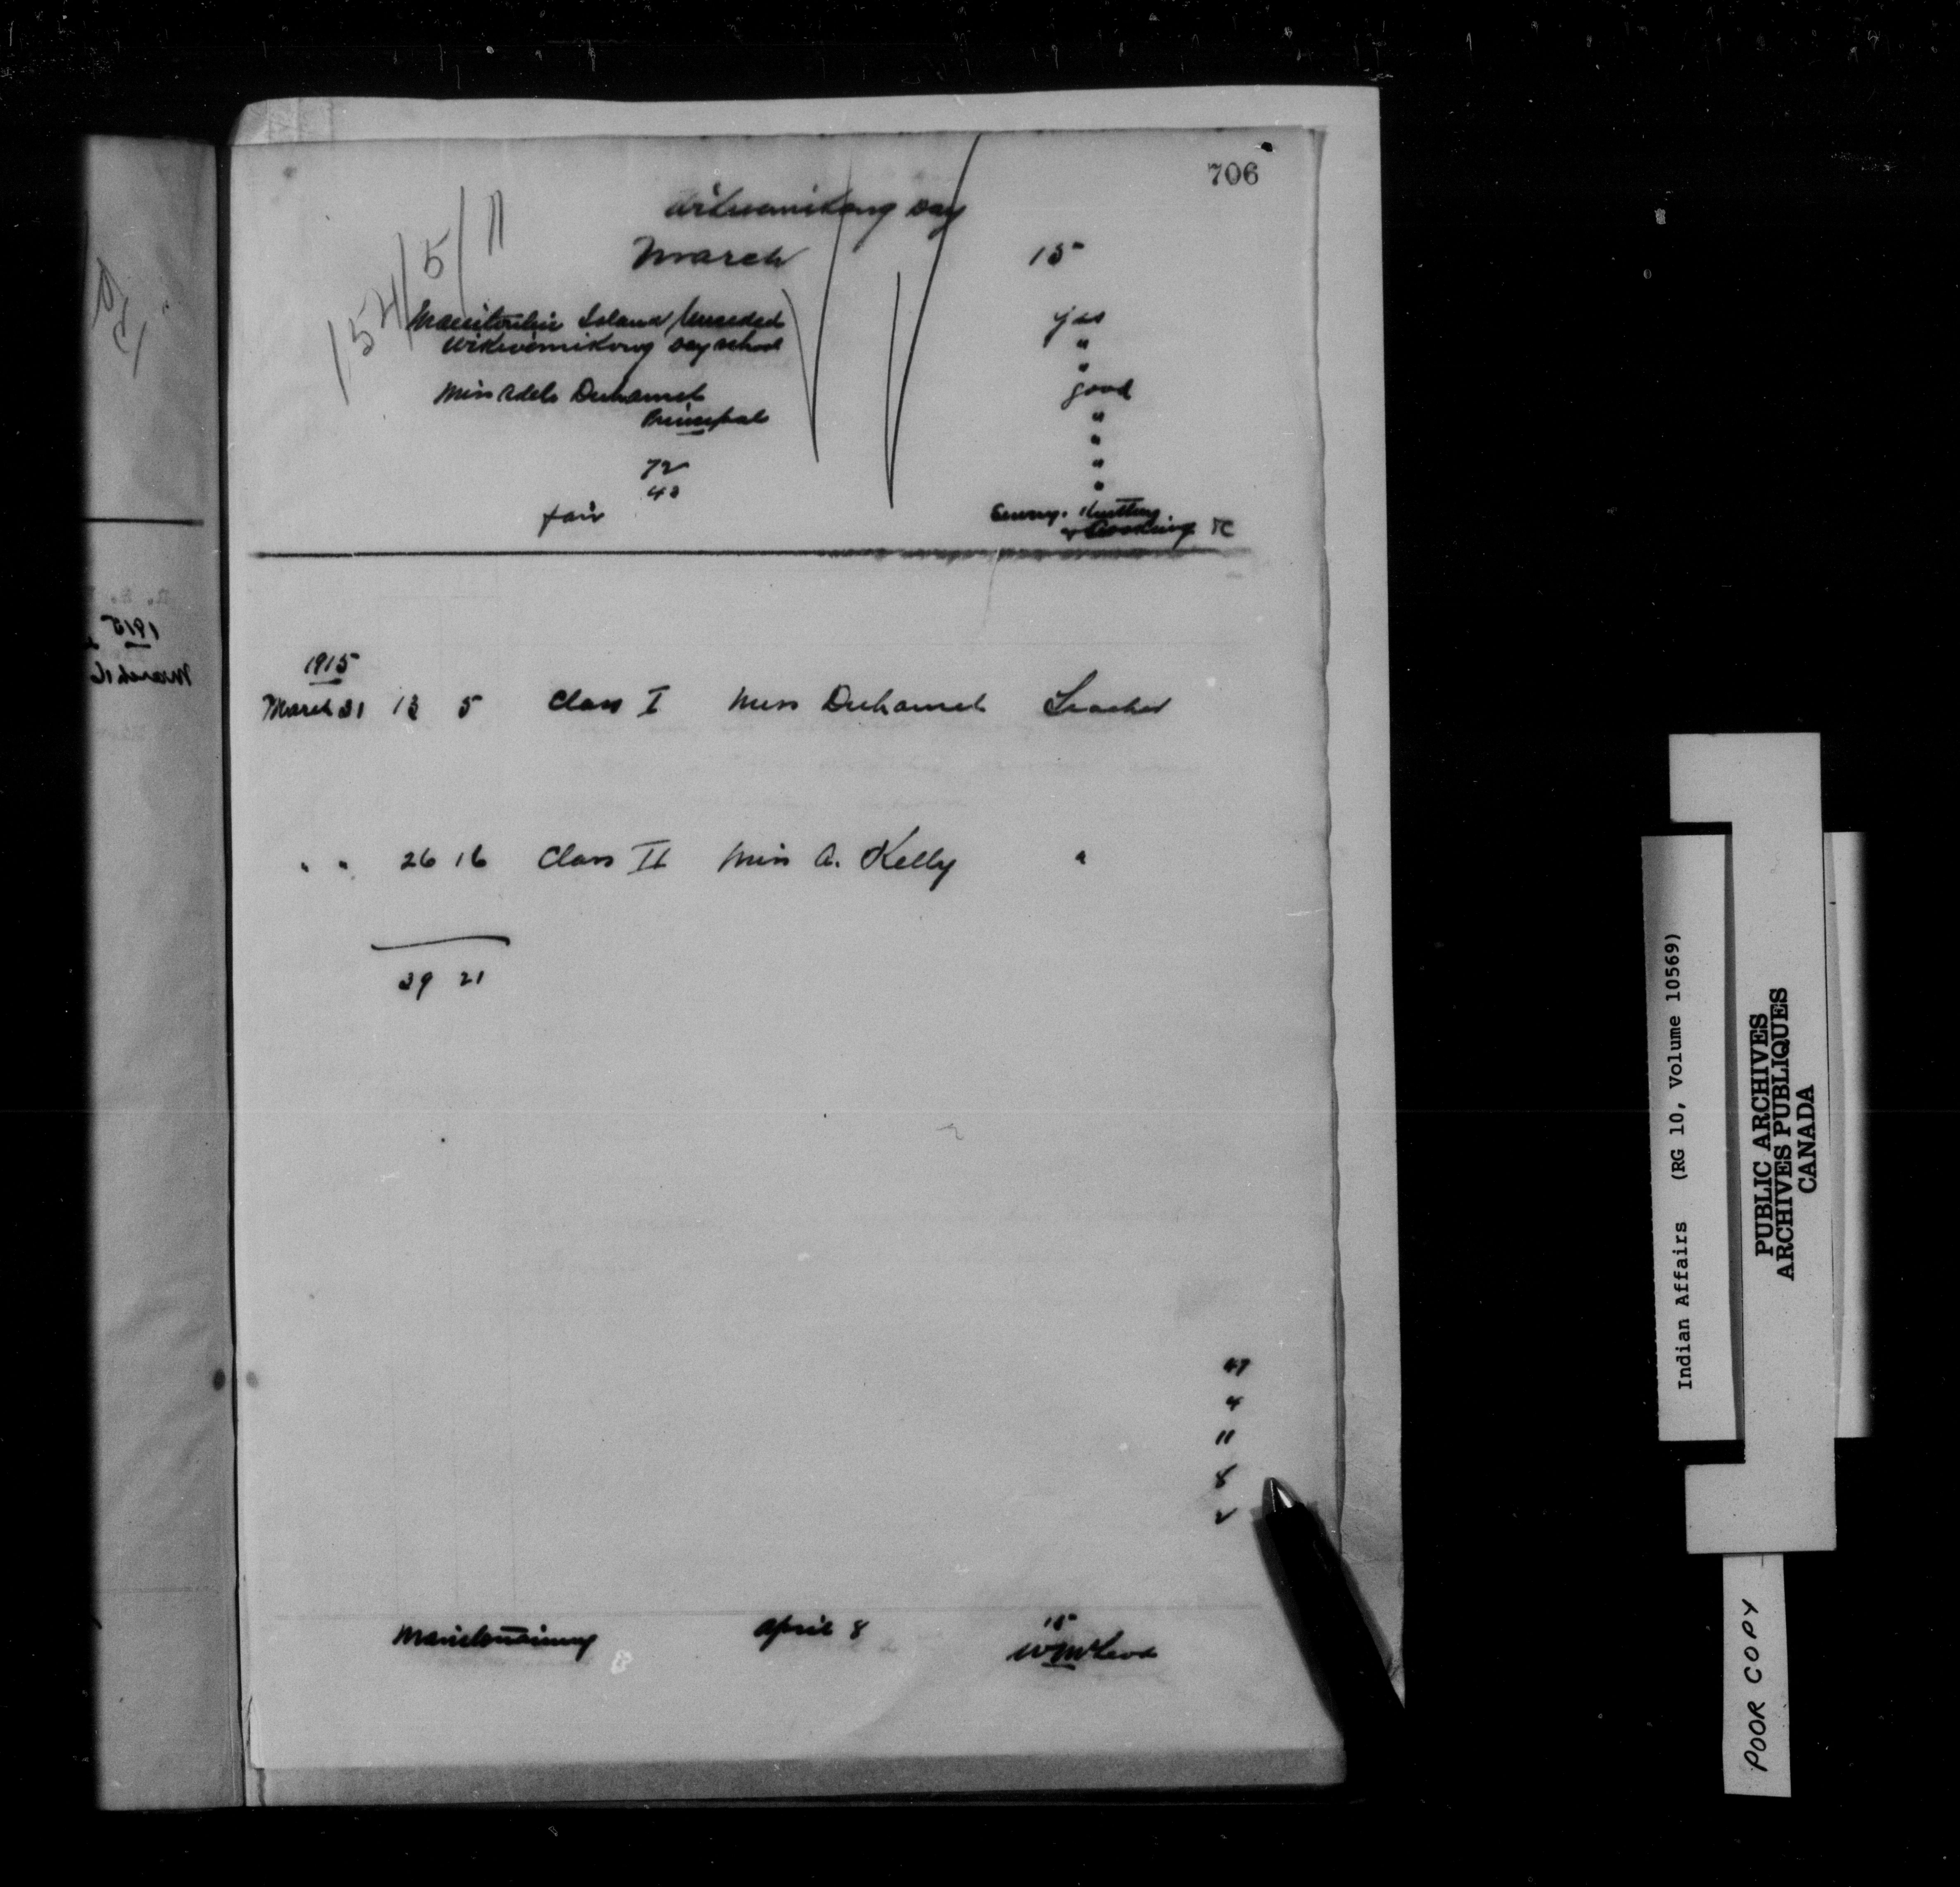 706
154/5/11
Wikwemikong Day
March 15
Manitoulin Island Unceded yes
Wikwemikong Day School "
"
Miss Adele Duhamel good
Principal "
"
72 "
43 "
fair Sewing. Knitting
& Cooking TC
1915
March 31 13 5 Class I Miss Duhamel Teacher
" " 26 16 Class II Miss A. Kelly "
39 21
47
4
11
8
2
Manitowaning April 8 15
W McLeod
1915
March 16
Indian Affairs (RG 10, Volume 10569)
PUBLIC ARCHIVES
ARCHIVES PUBLIQUES
CANADA
POOR COPY